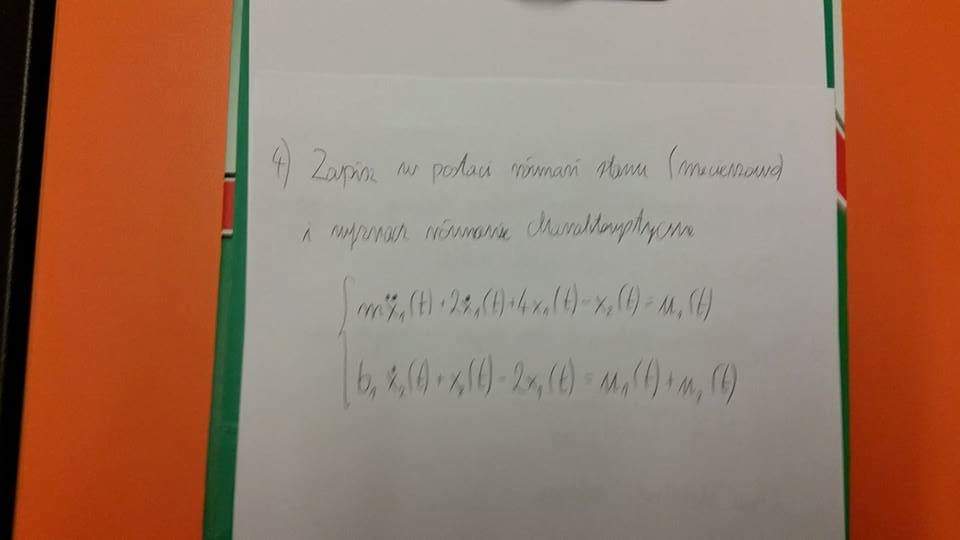 4) Zapisz w postaci równań stanu (macierzowo)
i wyznacz równanie charakterystyczne
mẍ₁(t)+2ẋ₁(t)+4x₁(t)-x₂(t)=u₁(t)
b₁ẋ₂(t)+x₂(t)-2x₁(t)=u₁(t)+u₂(t)